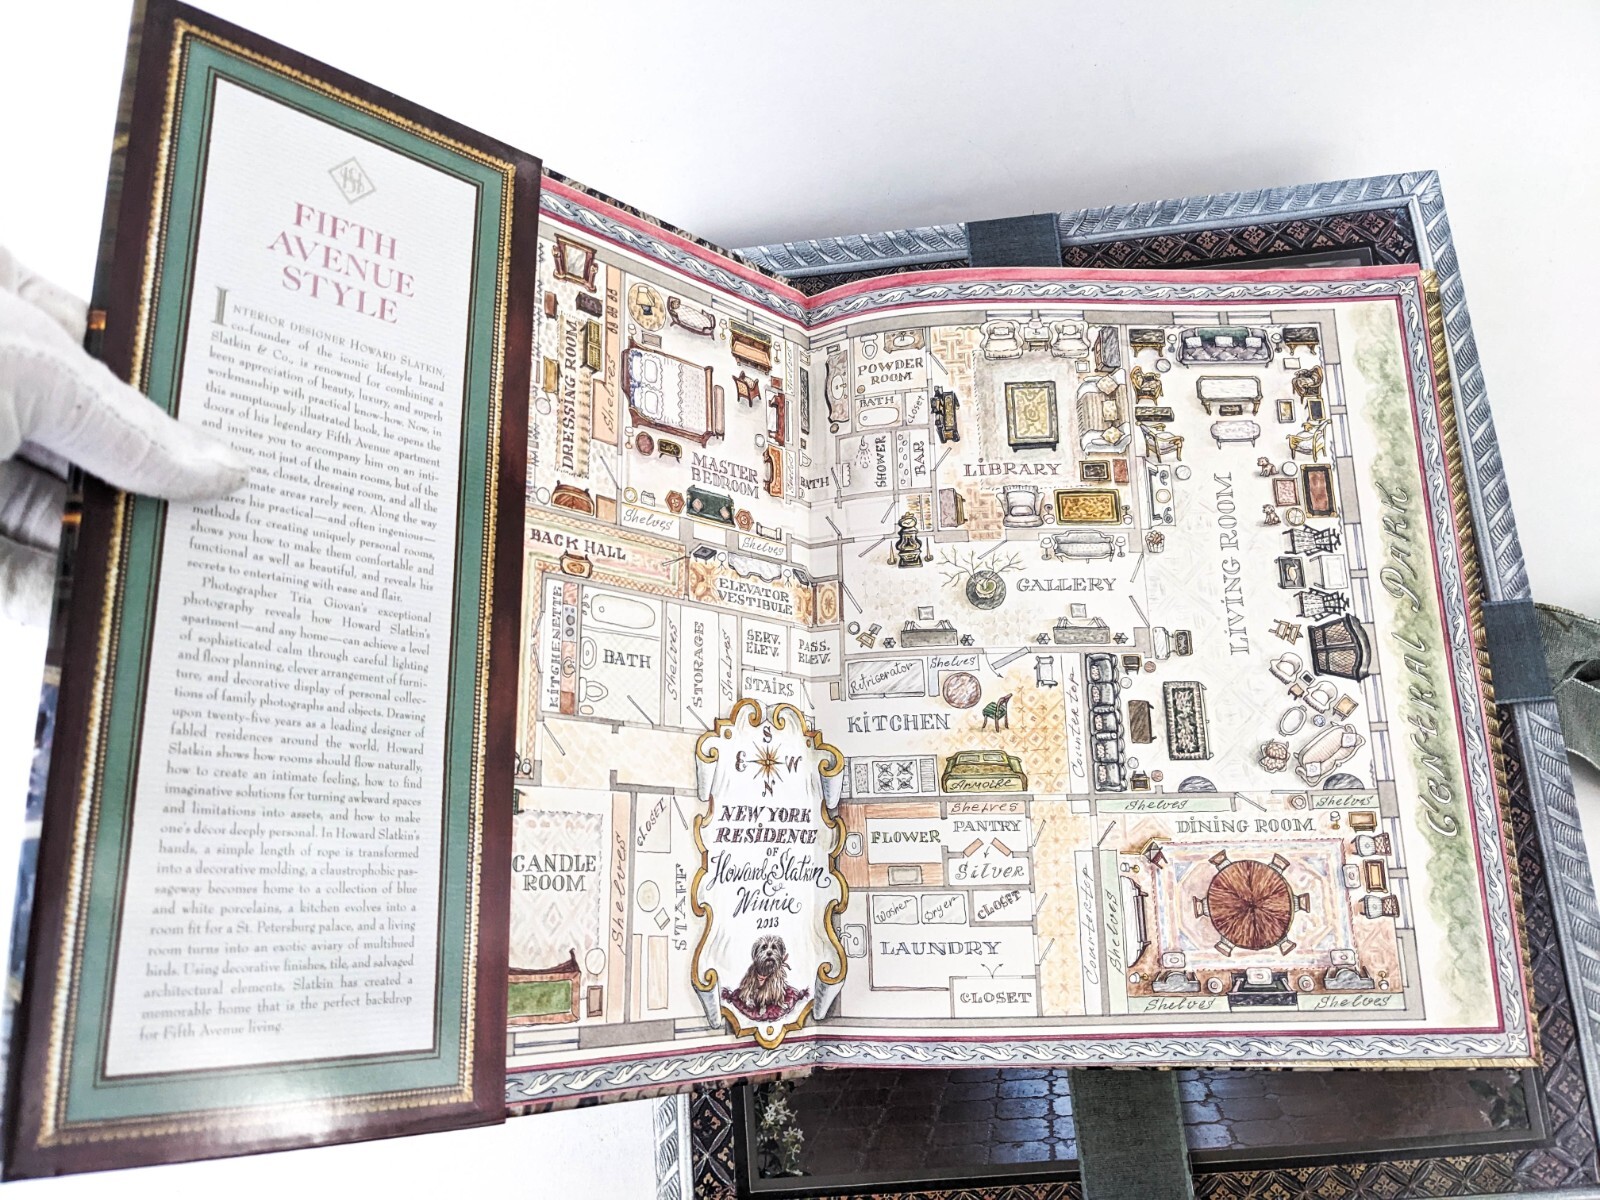 FIFTH
AVENUE
STYLE
INTERIOR DESIGNER HOWARD SLATKIN,
co-founder of the iconic lifestyle brand
Slatkin & Co., is renowned for combining a
keen appreciation of beauty, luxury, and superb
workmanship with practical know-how. Now, in
this sumptuously illustrated book, he opens the
doors of his legendary Fifth Avenue apartment
and invites you to accompany him on an inti-
tour, not just of the main rooms, but of the
eas, closets, dressing room, and all the
mate areas rarely seen. Along the way
ares his practical—and often ingenious—
methods for creating uniquely personal rooms,
shows you how to make them comfortable and
functional as well as beautiful, and reveals his
secrets to entertaining with ease and flair.
Photographer Tria Giovan's exceptional
photography reveals how Howard Slatkin's
apartment—and any home—can achieve a level
of sophisticated calm through careful lighting
and floor planning, clever arrangement of furni-
ture, and decorative display of personal collec-
tions of family photographs and objects. Drawing
upon twenty-five years as a leading designer of
fabled residences around the world, Howard
Slatkin shows how rooms should flow naturally,
how to create an intimate feeling, how to find
imaginative solutions for turning awkward spaces
and limitations into assets, and how to make
one's décor deeply personal. In Howard Slatkin's
hands, a simple length of rope is transformed
into a decorative molding, a claustrophobic pas-
sageway becomes home to a collection of blue
and white porcelains, a kitchen evolves into a
room fit for a St. Petersburg palace, and a living
room turns into an exotic aviary of multihued
birds. Using decorative finishes, tile, and salvaged
architectural elements, Slatkin has created a
memorable home that is the perfect backdrop
for Fifth Avenue living.
DRESSING ROOM
Shelves
MASTER
BEDROOM
BATH
Shelves
Shelves
BACK HALL
ELEVATOR
VESTIBULE
KITCHENETTE
BATH
Shelves
STORAGE
Shelves
SERV.
ELEV.
PASS.
ELEV.
STAIRS
CANDLE
ROOM
Shelves
CLOSET
STAFF
S
E W
N
NEW YORK
RESIDENCE
OF
Howard Slatkin
&
Winnie
2013
POWDER
ROOM
BATH
CLOSET
SHOWER
BAR
LIBRARY
GALLERY
LIVING ROOM
CENTRAL PARK
Refrigerator
Shelves
KITCHEN
Countertop
Armoire
Shelves
FLOWER
PANTRY
Silver
Washer
Dryer
CLOSET
LAUNDRY
CLOSET
Countertop
Shelves
Shelves
Shelves
DINING ROOM
Shelves
Shelves